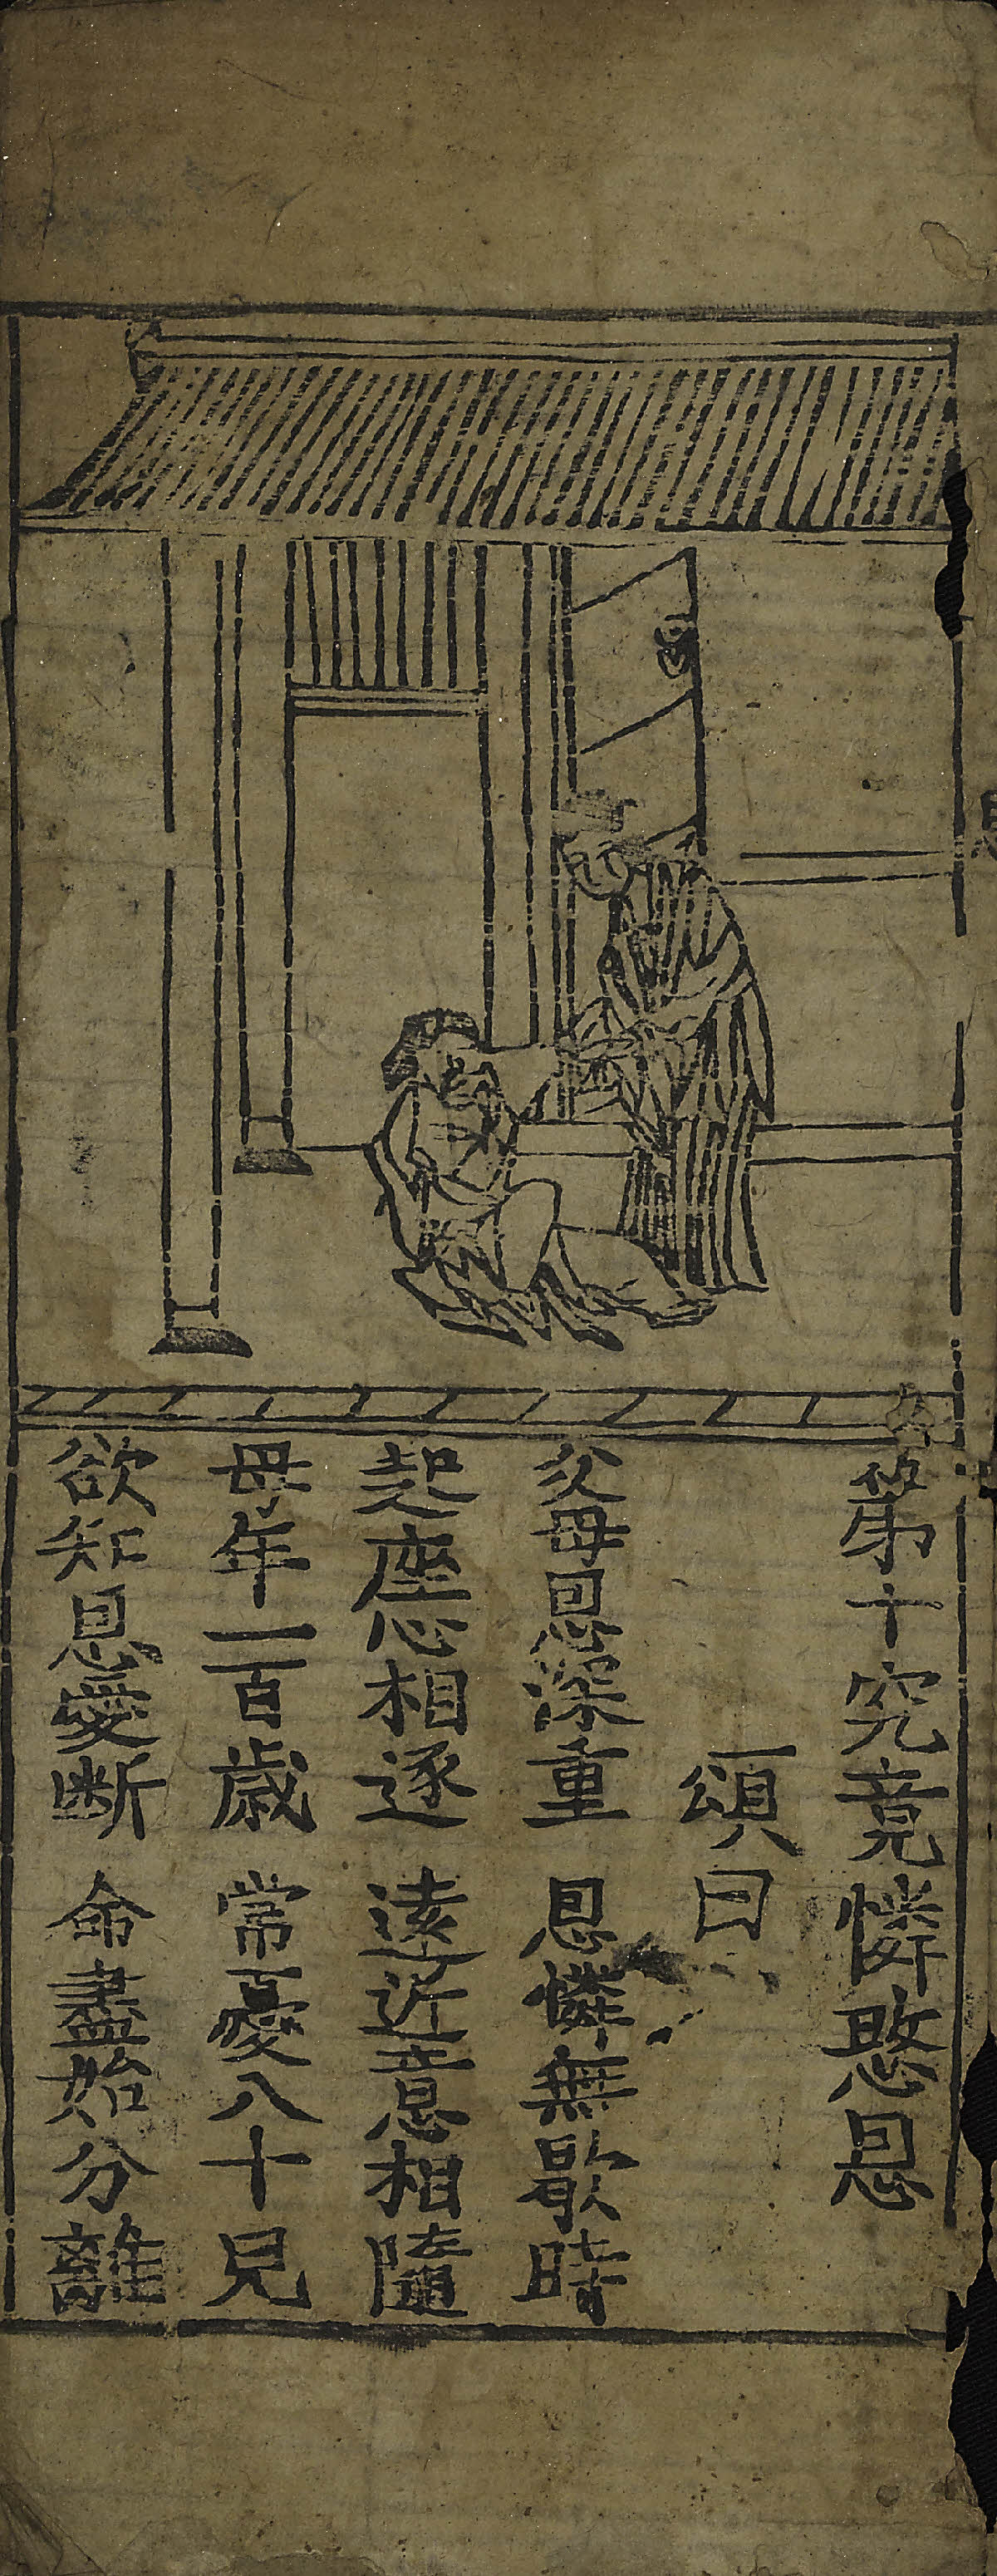 第十究竟憐愍恩
頌曰
父母恩深重 恩憐無歇時
起座心相逐 遠近意相隨
母年一百歲 常憂八十兒
欲知恩愛斷 命盡始分離